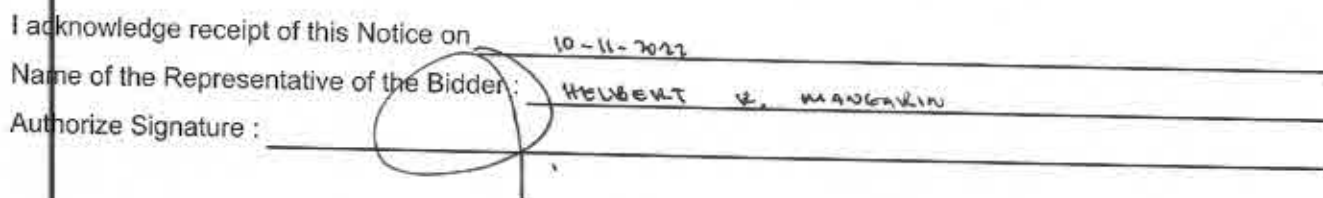 I acknowledge receipt of this Notice on 10-11-2022
Name of the Representative of the Bidder : HELBERT R. MANGARIN
Authorize Signature :